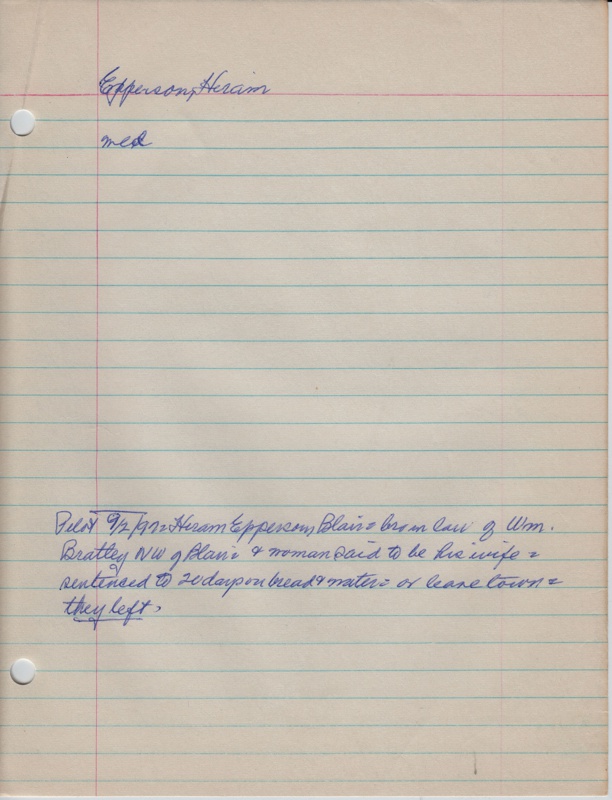 Epperson, Hiram
med
Pilot 9/2/92 = Hiram Epperson, Blair = bro in law of Wm.
Bratley NW of Blair = & woman said to be his wife =
sentenced to 20 days on bread & water = or leave town =
they left.